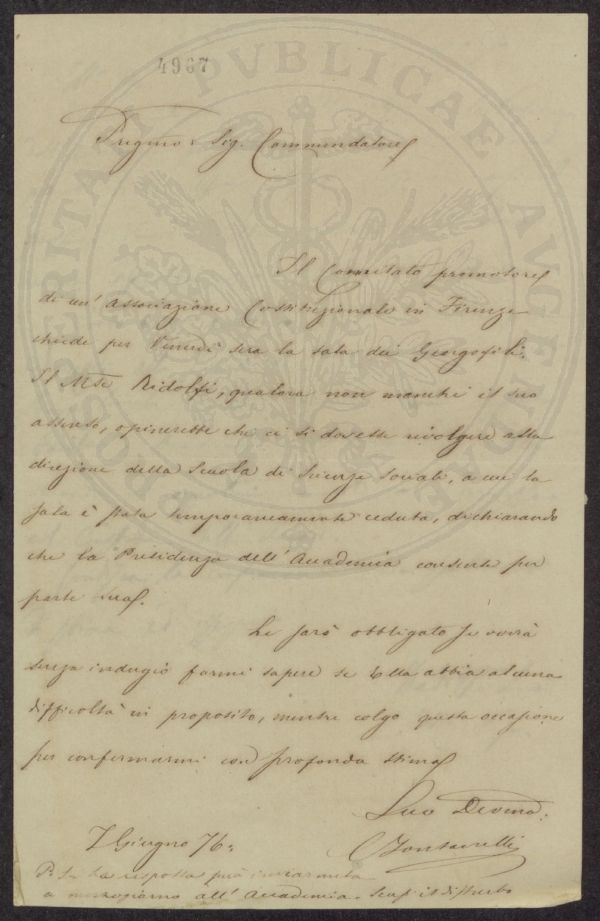 4967
Pregmo Sig. Commendatore
Il Comitato promotore
di un' associazione Costituzionale in Firenze
chiede per Venerdì sera la sala dei Georgofili.
Il Mse Ridolfi, qualora non manchi il suo
assenso, opinerebbe che ci si dovesse rivolgere alla
direzione della Scuola di Scienze sociali, a cui la
sala è stata temporaneamente ceduta, dichiarando
che la Presidenza dell' Accademia consente per
parte sua.
Le sarò obbligato se vorrà
senza indugio farmi sapere se Ella abbia alcuna
difficoltà in proposito, mentre colgo questa occasione
per confermarmi con profonda stima
Suo Devmo.
C Fontanelli
7 Giugno 76.
P.S. La risposta può inviarmela
a mezzogiorno all' Accademia. Scusi il disturbo